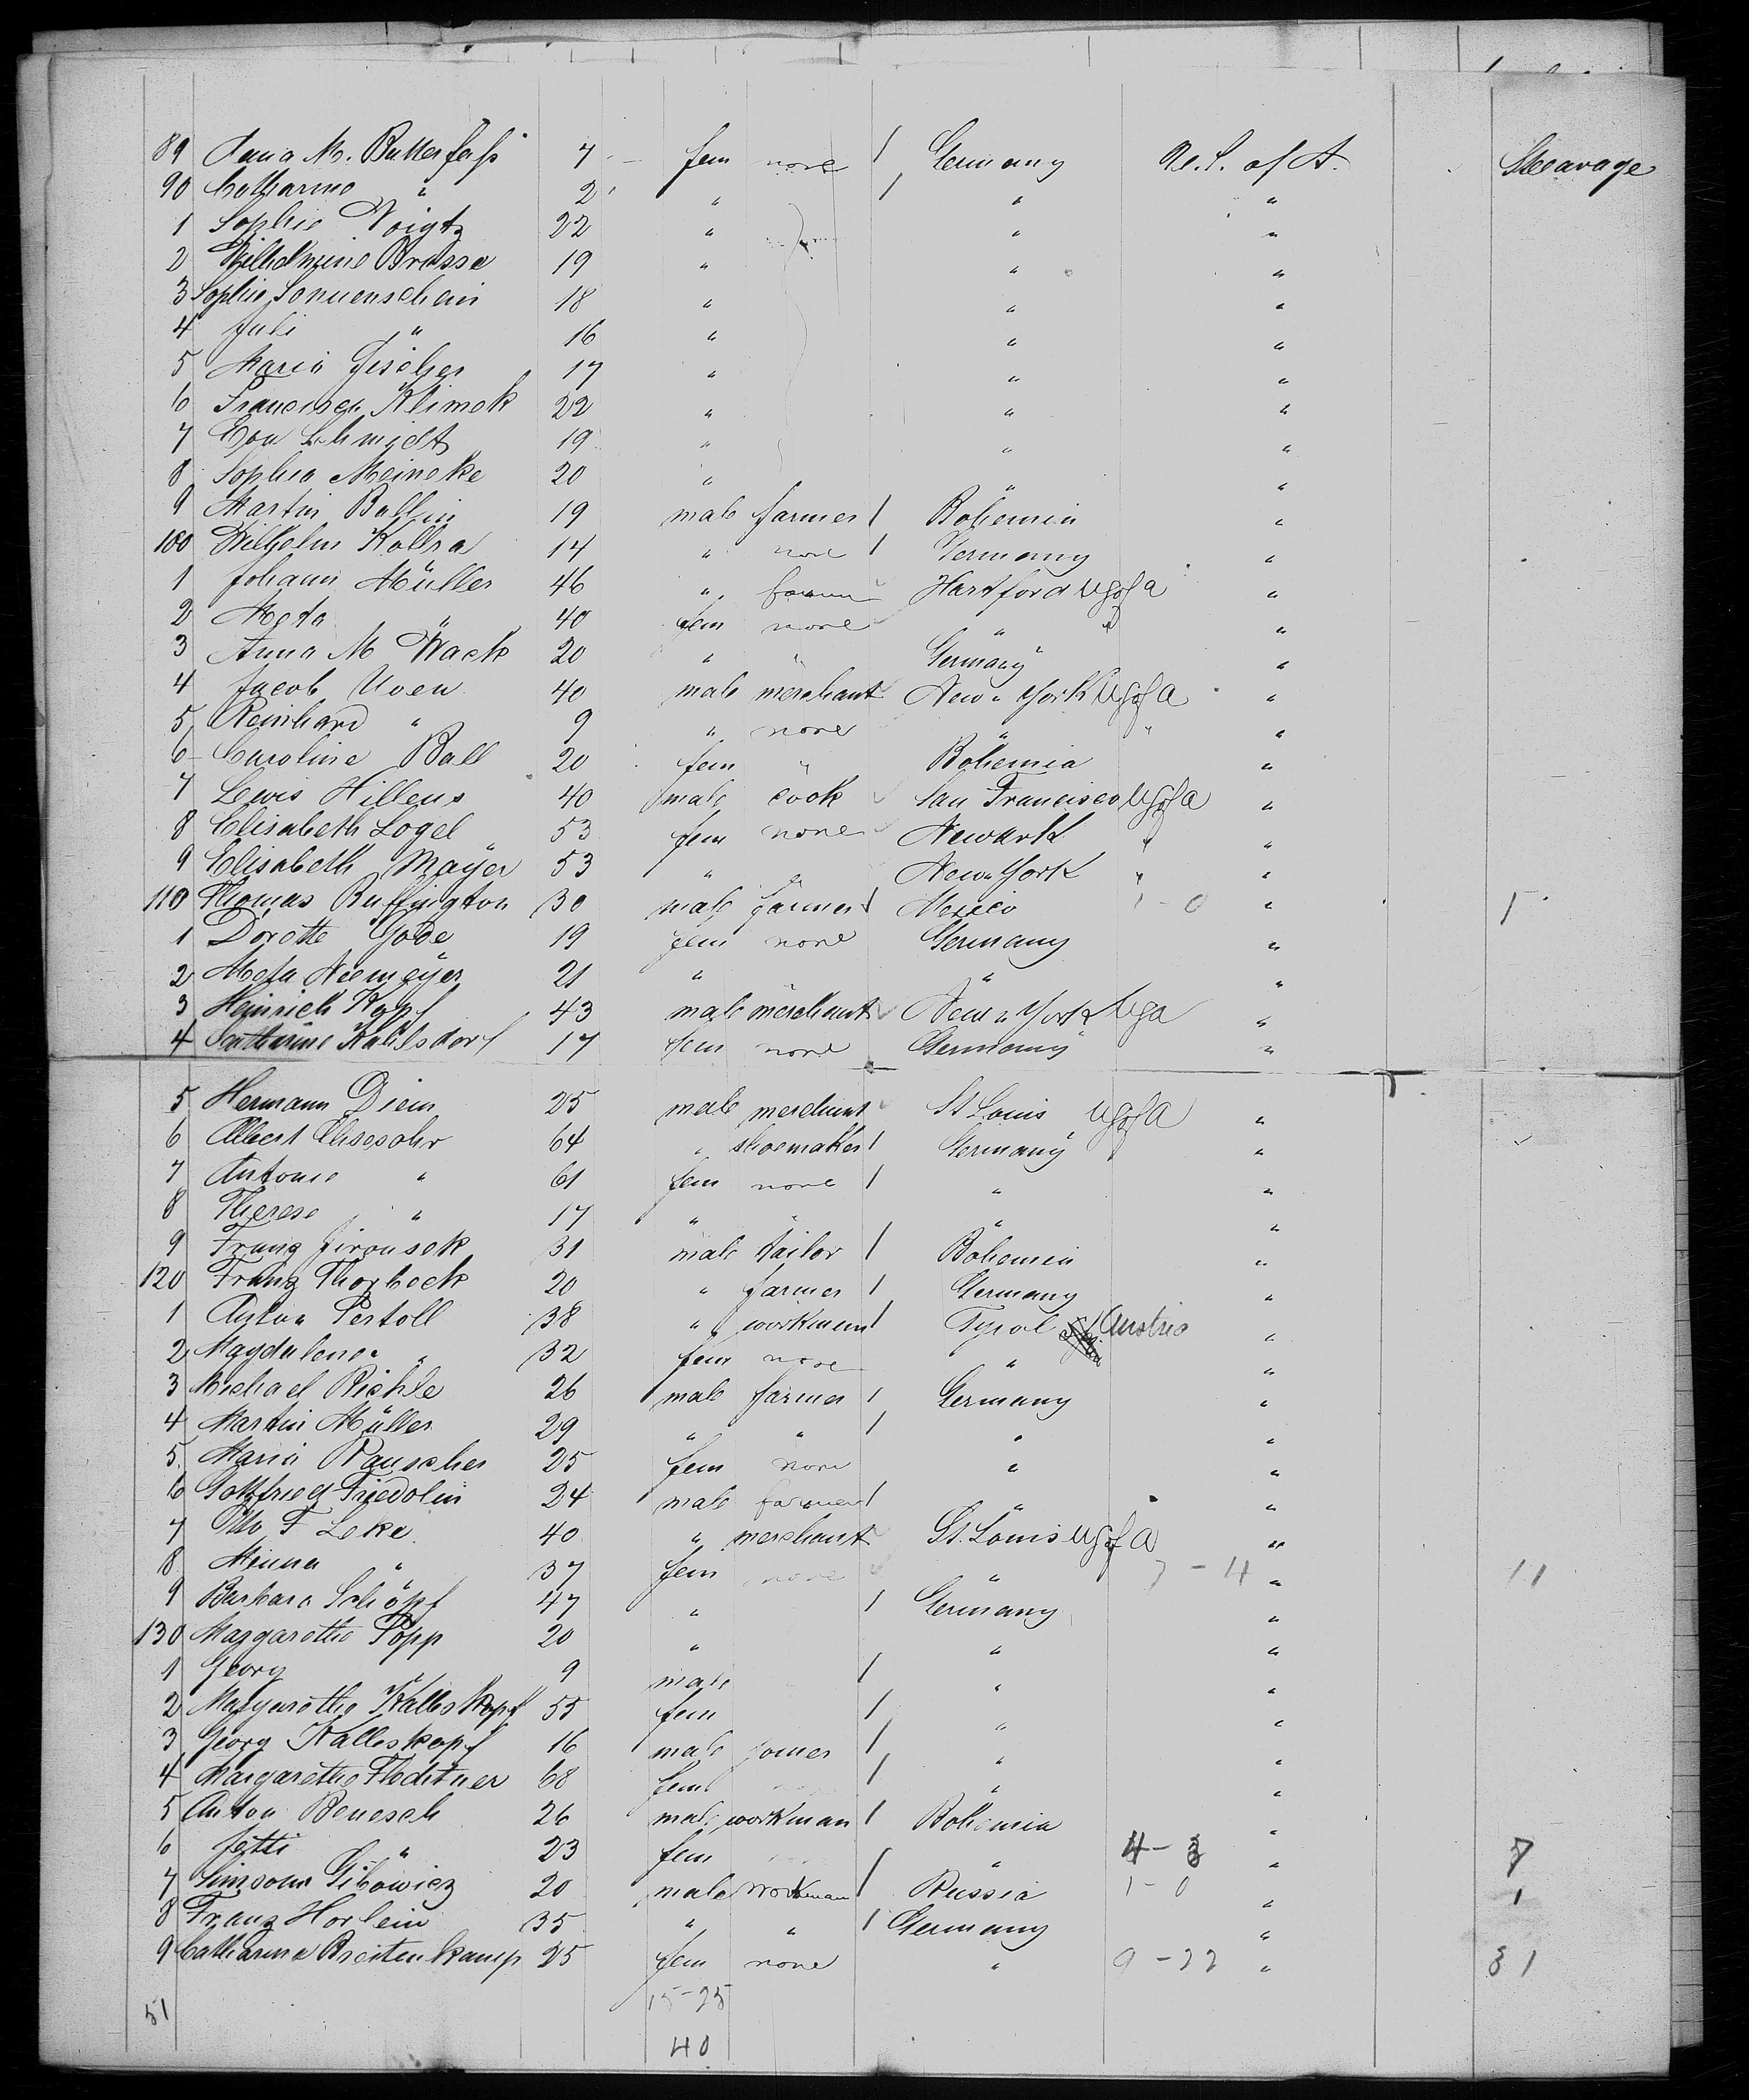 89 Anna M. Butterfaß 7 fem none / Germany U.S. of A. Steerage
90 Catharine " 2 " / " "
1 Sophie Voigt 22 " " "
2 Wilhelmine Brasse 19 " " "
3 Sophie Sonnenschein 18 " " "
4 Juli " 16 " " "
5 Maria Fischer 17 " " "
6 Francisca Klimek 22 " " "
7 Eva Schmidt 19 " " "
8 Sophia Meineke 20 " " "
9 Martin Ballin 19 male farmer / Bohemia "
100 Wilhelm Kollra 14 " none / Germany "
1 Johann Müller 46 " farmer Hartford US of A "
2 Meta " 40 fem none " " "
3 Anna M Wack 20 " " Germany "
4 Jacob Uven 40 male merchant New York US of A "
5 Reinhard " 9 " none " " "
6 Caroline Ball 20 fem " Bohemia "
7 Lewis Hillens 40 male cook San Francisco US of A "
8 Elisabeth Logel 53 fem none Newark " "
9 Elisabeth Mayer 53 " " New York " "
110 Thomas Buffington 30 male farmer Mexico 1-0 " 1
1 Dorette Gode 19 fem none Germany "
2 Meta Niemeyer 21 " " "
3 Heinrich Kopf 43 male merchant New York USA "
4 Catharine Kahlsdorf 17 fem none Germany "
5 Hermann Diem 25 male merchant St Louis US of A "
6 Albert 64 " shoemaker / Germany "
7 Antonie " 61 fem none / " "
8 Therese " 17 " " " "
9 Franz Jirousek 31 male tailor / Bohemia "
120 Franz Thorbeck 20 " farmer / Germany "
1 Anton Pertoll 38 " workman / Tyrol Austria "
2 Magdalena " 32 fem none " "
3 Michael Riehle 26 male farmer / Germany "
4 Martin Müller 29 " " / " "
5 Maria Rauscher 25 fem none " "
6 Gottfried Friedolin 24 male farmer / " "
7 F Leke 40 " merchant St. Louis US of A "
8 Minna " 37 fem none " 7-4 " 11
9 Barbara Schöpf 47 " / Germany "
130 Margarethe Popp 20 " " "
1 Georg 9 male / " "
2 Margarethe Kalleskopf 55 fem / " "
3 Georg Kalleskopf 16 male joiner / " "
4 Margarethe 68 fem / " "
5 Anton Benesch 26 male workman / Bohemia "
6 Jetti " 23 fem " 4-3 " 7
7 Simson Gibowicz 20 male workman / Russia 1-0 " 1
8 Franz Horlein 35 " " / Germany "
9 Catharina Breitenkamp 25 fem none " 9-22 " 31
51 15-25
40